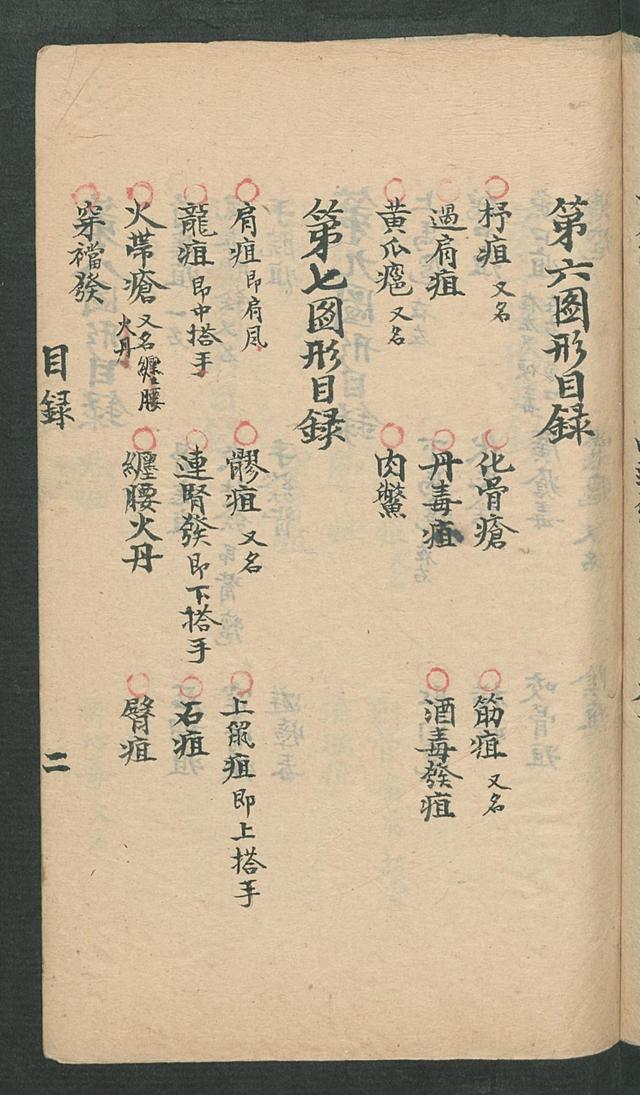 第六圖形目録
杼疽 又名 化骨瘡 筋疽 又名
過肩疽 丹毒疽 酒毒發疽
黃瓜癰 又名 肉鱉
第七圖形目録
肩疽 即肩風 髎疽 又名 上鼠疽 即上搭手
龍疽 即中搭手 連腎發 即下搭手 石疽
火帶瘡 又名纏腰火丹 纏腰火丹 臀疽
穿襠發
目録 二